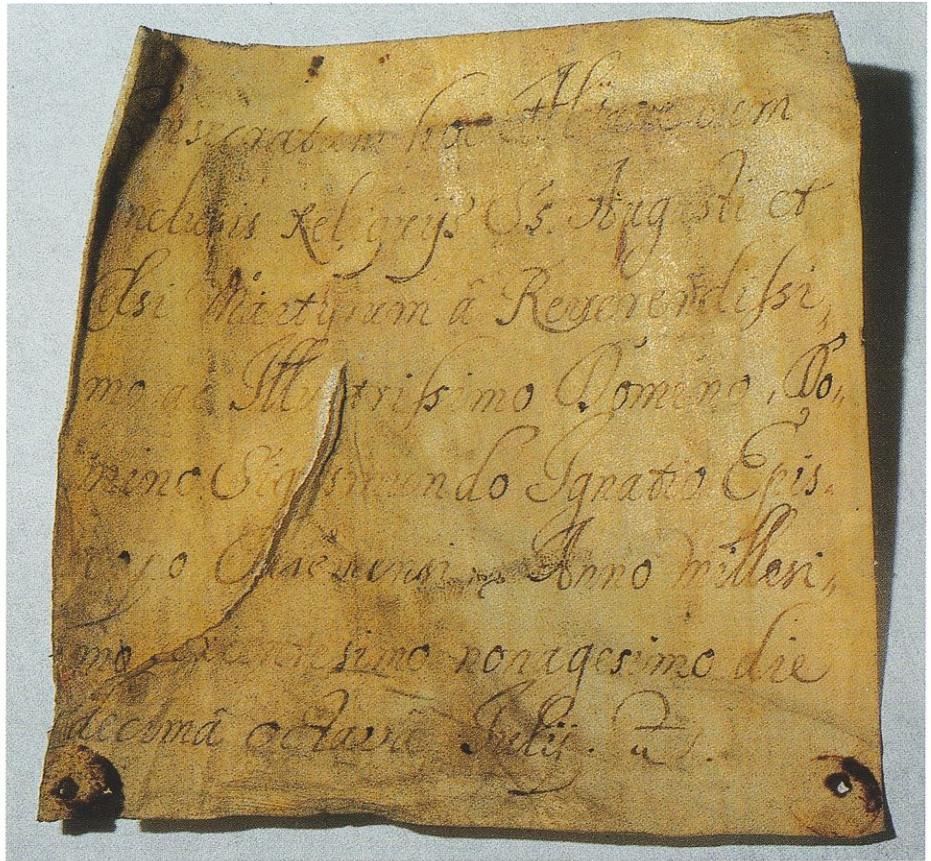 Consecratum hoc Altare cum
inclusis Reliquijs Ss. Augusti et
Celsi Martyrum â Reverendissi,,
mo ac Illustrissimo Domino, Do,,
mino Sigismundo Ignatio Epis,,
copo Chiemensi, Anno millesi,,
mo sexcentesimo nonagesimo die
decimâ octavâ Julij.